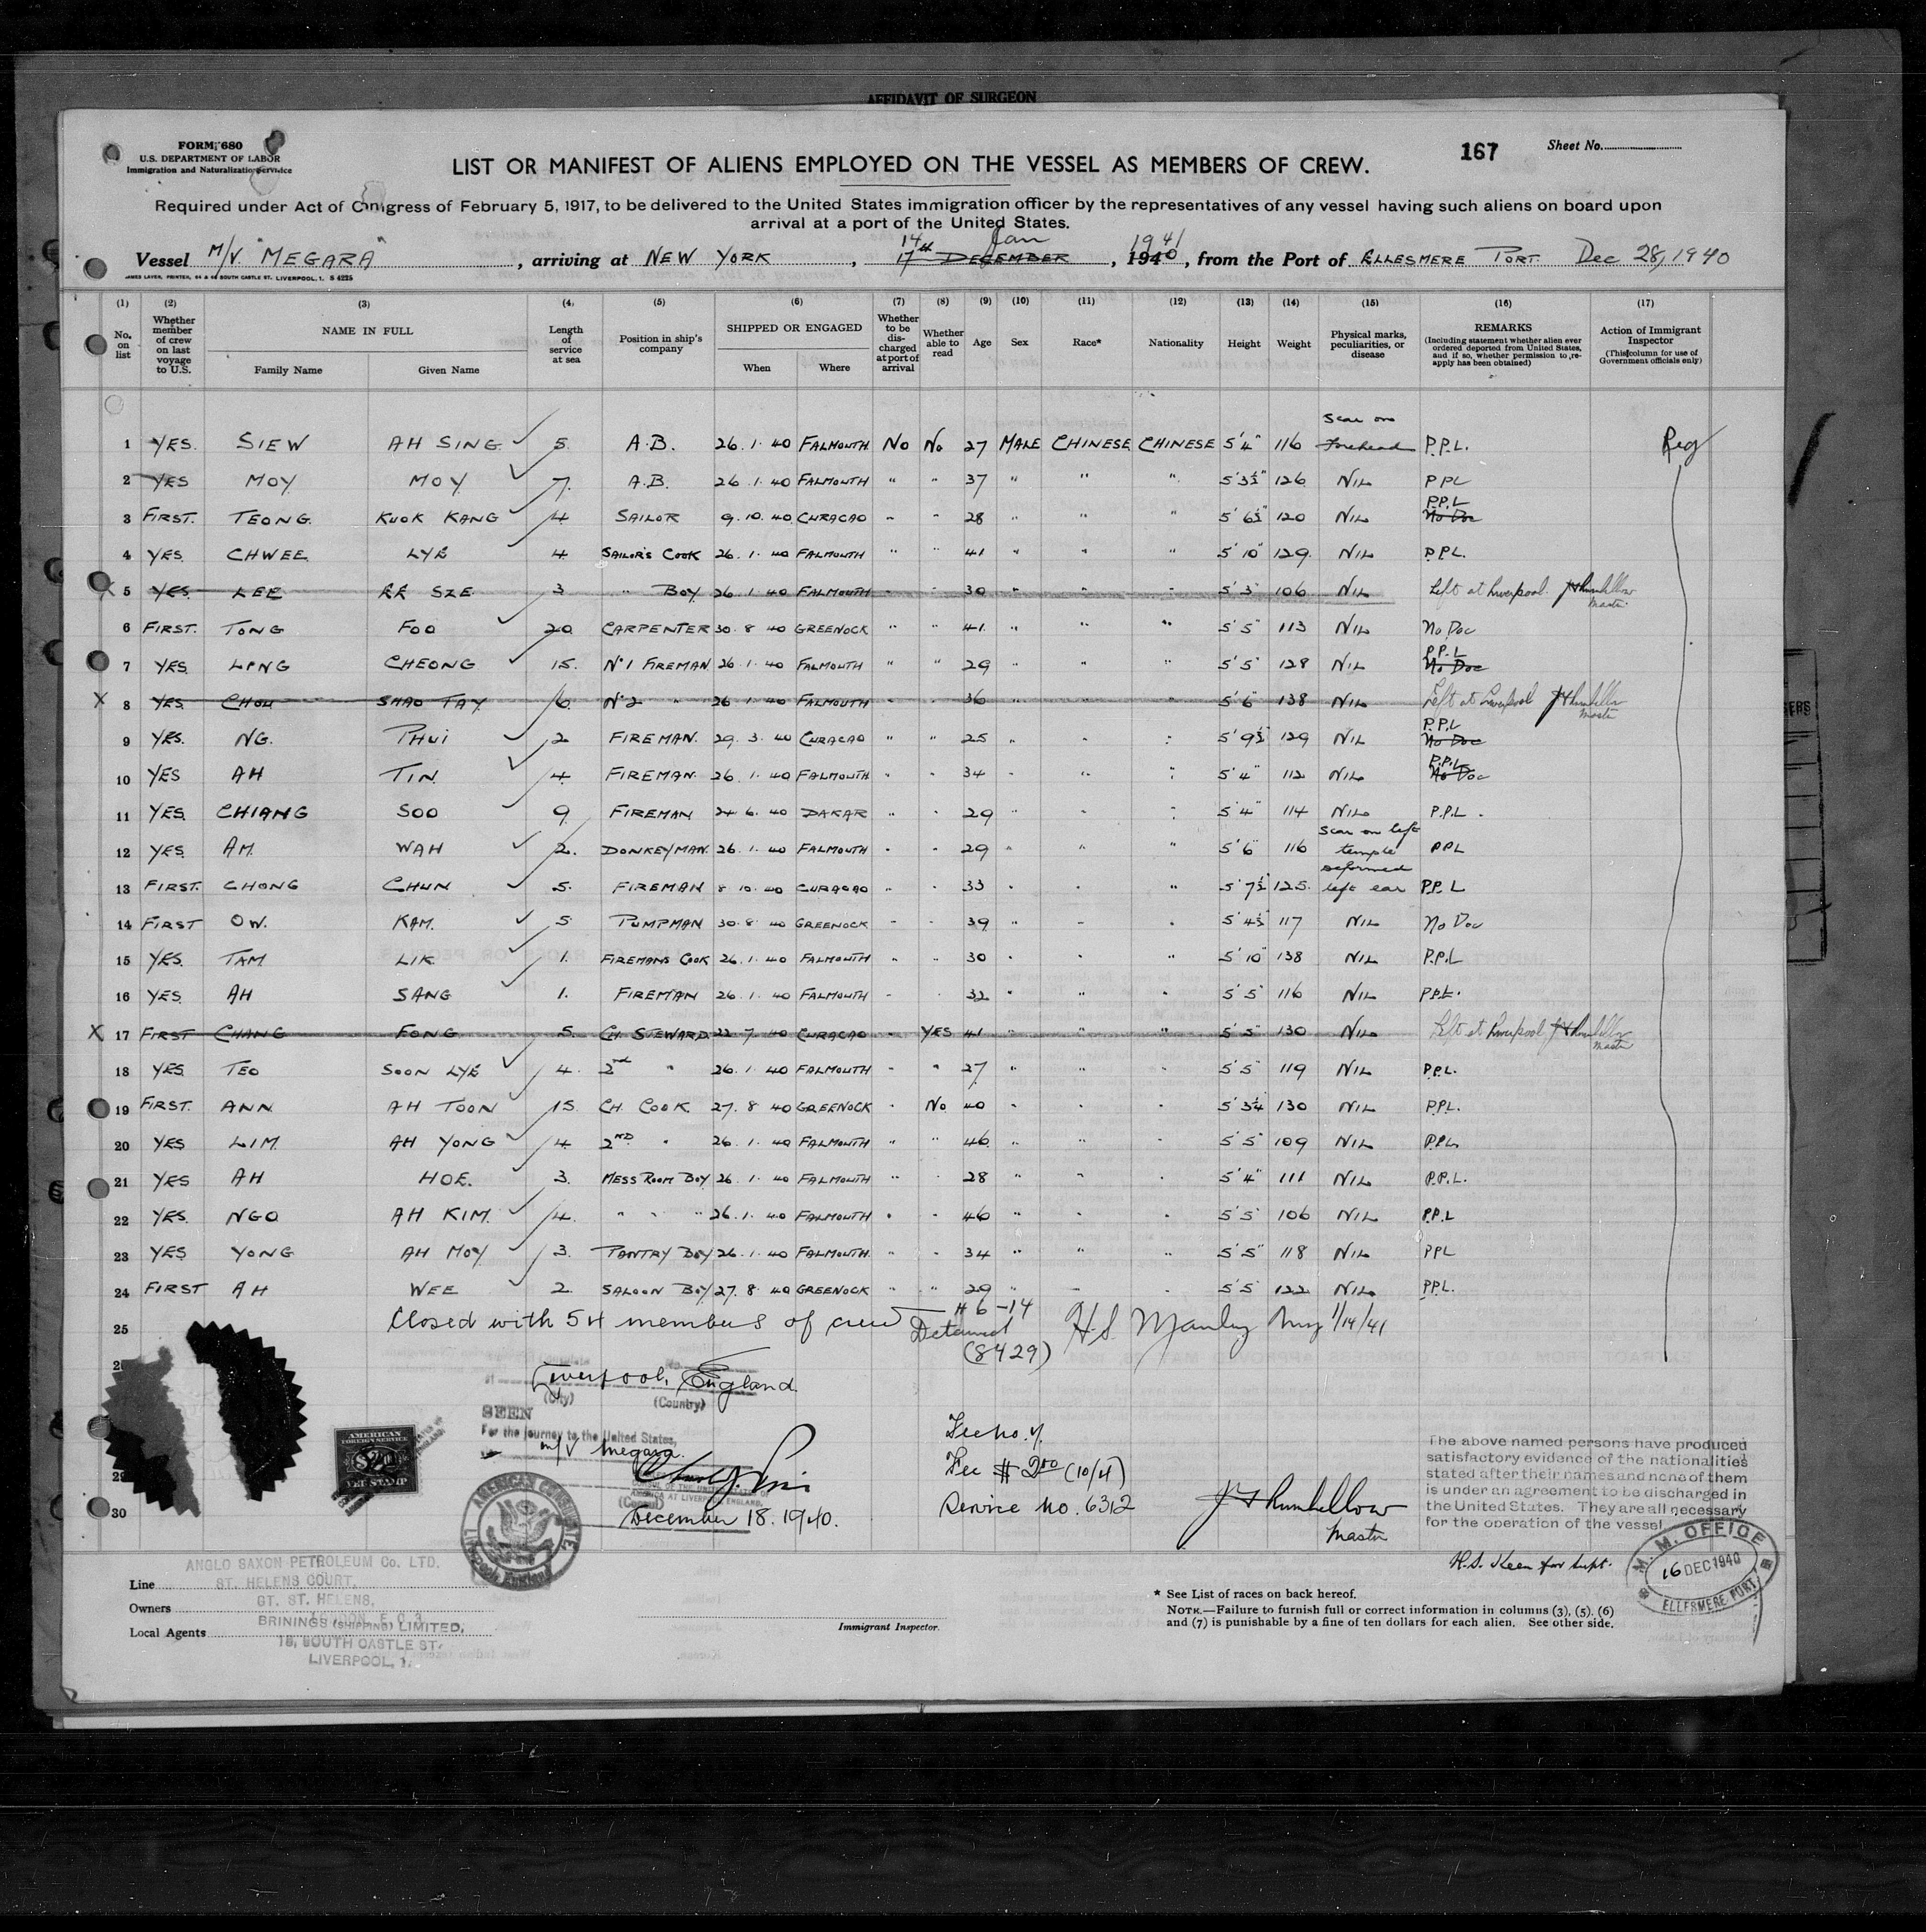 AFFIDAVIT OF SURGEON
FORM 680
U.S. DEPARTMENT OF LABOR
Immigration and Naturalization Service
LIST OR MANIFEST OF ALIENS EMPLOYED ON THE VESSEL AS MEMBERS OF CREW.
167
Sheet No.
Required under Act of Congress of February 5, 1917, to be delivered to the United States immigration officer by the representatives of any vessel having such aliens on board upon
arrival at a port of the United States.
14 Jan 1941
Vessel M/V. "MEGARA", arriving at NEW YORK, 17th DECEMBER, 1940, from the Port of ELLESMERE PORT Dec 28, 1940
JAMES LAVER, PRINTER, SOUTH CASTLE ST. LIVERPOOL, 1.
(1) (2) (3) (4) (5) (6) (7) (8) (9) (10) (11) (12) (13) (14) (15) (16) (17)
No. on list
Whether member of crew on last voyage to U.S.
NAME IN FULL
Family Name Given Name
Length of service at sea
Position in ship's company
SHIPPED OR ENGAGED
When Where
Whether to be discharged at port of arrival
Whether able to read
Age Sex Race* Nationality Height Weight
Physical marks, peculiarities, or disease
REMARKS
(Including statement whether alien ever ordered deported from United States, and if so, whether permission to re-apply has been obtained)
Action of Immigrant Inspector
(This column for use of Government officials only)
1 YES. SIEW AH SING 5. A.B. 26.1.40 FALMOUTH No No 27 MALE CHINESE CHINESE 5'4" 116 Scar on forehead P.P.L. Reg
2 YES MOY MOY 7. A.B. 26.1.40 FALMOUTH " " 37 " " " 5'3½" 126 NIL PPL
3 FIRST. TEONG. KUOK KANG 4 SAILOR 9.10.40 CURACAO " " 28 " " " 5'6½" 120 NIL P.P.L No Doc
4 YES. CHWEE LYE 4. SAILOR'S COOK 26.1.40 FALMOUTH " " 41 " " " 5'10" 129. NIL P.P.L.
X 5 YES. LEE SZE 3 " BOY 26.1.40 FALMOUTH " " 30 " " " 5'3" 106 NIL Left at Liverpool. Master
6 FIRST. TONG FOO 20 CARPENTER 30.8.40 GREENOCK " " 41. " " " 5'5" 113 NIL No Doc
7 YES. LING CHEONG 15. No1 FIREMAN 26.1.40 FALMOUTH " " 29 " " " 5'5" 128 NIL P.P.L No Doc
X 8 YES CHOU SHAO TAY 6. No2 " 26.1.40 FALMOUTH " " 36 " " " 5'6" 138 NIL Left at Liverpool Master
9 YES. NG. THUI 2 FIREMAN. 29.3.40 CURACAO " " 25 " " " 5'9½" 129 NIL P.P.L No Doc
10 YES AH TIN 4. FIREMAN 26.1.40 FALMOUTH " " 34 " " " 5'4" 112 NIL P.P.L No Doc
11 YES. CHIANG SOO 9. FIREMAN 24.6.40 DAKAR " " 29 " " " 5'4" 114 NIL P.P.L.
12 YES. AM. WAH 2. DONKEYMAN. 26.1.40 FALMOUTH " " 29 " " " 5'6" 116 Scar on left temple PPL
13 FIRST. CHONG CHUN 5. FIREMAN 8.10.40 CURACAO " " 33 " " " 5'7½" 125. deformed left ear P.P.L
14 FIRST OW. KAM. 5. PUMPMAN 30.8.40 GREENOCK " " 39 " " " 5'4½" 117 NIL No Doc
15 YES. TAM LIK 1. FIREMANS COOK 26.1.40 FALMOUTH " " 30 " " " 5'10" 138 NIL P.P.L
16 YES. AH SANG 1. FIREMAN 26.1.40 FALMOUTH " " 32 " " " 5'5" 116 NIL P.P.L.
X 17 FIRST CHANG FONG 5. CH. STEWARD 22.7.40 CURACAO " YES 41 " " " 5'5" 130 NIL Left at Liverpool Master
18 YES. TEO SOON LYE 4. 2nd " 26.1.40 FALMOUTH " " 27 " " " 5'5" 119 NIL P.P.L.
19 FIRST. ANN. AH TOON 15 CH. COOK 27.8.40 GREENOCK " No 40 " " " 5'3¼" 130 NIL P.P.L.
20 YES LIM. AH YONG 4. 2ND " 26.1.40 FALMOUTH " " 46 " " " 5'5" 109 NIL P.P.L.
21 YES AH HOE. 3. MESS ROOM BOY 26.1.40 FALMOUTH " " 28 " " " 5'4" 111 NIL P.P.L.
22 YES. NGO AH KIM. 4. " " " 26.1.40 FALMOUTH " " 46 " " " 5'5" 106 NIL P.P.L
23 YES YONG AH MOY 3. PANTRY BOY 26.1.40 FALMOUTH. " " 34 " " " 5'5" 118 NIL PPL
24 FIRST AH WEE 2 SALOON BOY 27.8.40 GREENOCK " " 29 " " " 5'5" 122 NIL P.P.L.
25 Closed with 54 members of crew #6-14
Detained H.S. Manley 1/14/41
(8429)
Liverpool, England.
(City) (Country)
SEEN
For the journey to the United States,
m/v Megara.
(Consul)
CONSUL OF THE UNITED STATES OF
AMERICA AT LIVERPOOL, ENGLAND.
December 18. 1940.
AMERICAN FOREIGN SERVICE
$2
FEE STAMP
AMERICAN CONSULATE
Liverpool, England
Fee $ 2.00 (10/4)
Service No. 6312
Master
29
30
The above named persons have produced
satisfactory evidence of the nationalities
stated after their names and none of them
is under an agreement to be discharged in
the United States. They are all necessary
for the operation of the vessel.
H.S. Keen for Supt.
M. M. OFFICE
16 DEC 1940
ELLESMERE PORT
ANGLO SAXON PETROLEUM Co. LTD.
Line ST. HELENS COURT,
GT. ST. HELENS,
Owners LONDON, E.C.3.
BRININGS (SHIPPING) LIMITED,
Local Agents 18, SOUTH CASTLE ST.
LIVERPOOL, 1.
Immigrant Inspector.
* See List of races on back hereof.
NOTE.—Failure to furnish full or correct information in columns (3), (5), (6)
and (7) is punishable by a fine of ten dollars for each alien. See other side.